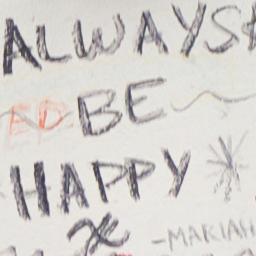 ALWAYS
BE
HAPPY
x
-MARIAH